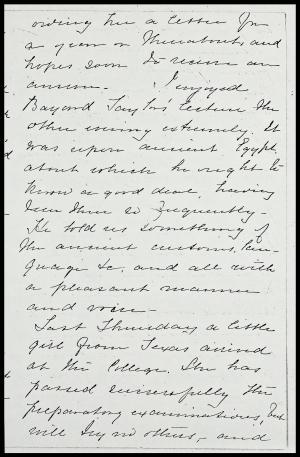 owing her a letter for
a year or thereabouts, and
hopes soon to receive an
answer. I enjoyed
Bayard Taylor's lecture the
other evening extremely. It
was upon ancient Egypt,
about which he ought to
know a good deal, having
been there so frequently.
He told us something of
the ancient customs, lan-
guage &c. and all with
a pleasant manner
and voice.
Last Thursday a little
girl from Texas arrived
at the College. She has
passed successfully the
preparatory examinations, but
will try no others, and